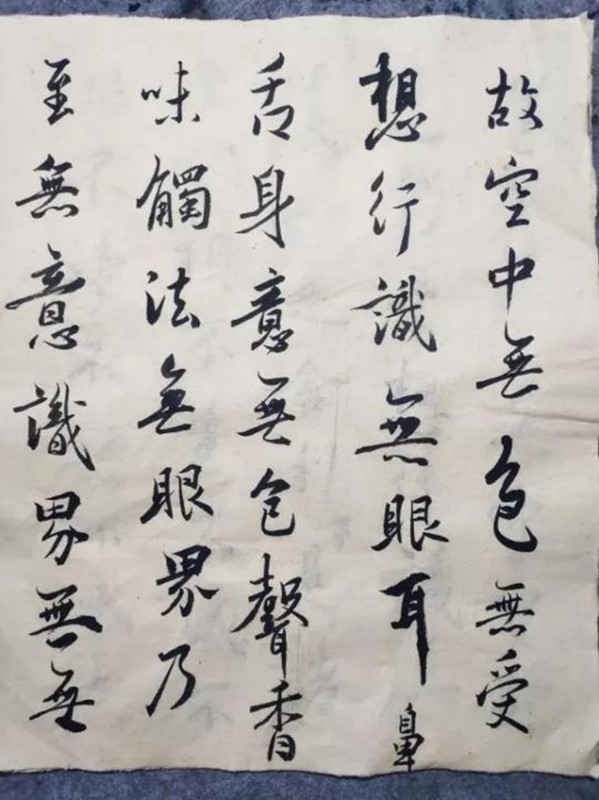 故空中無色無受
想行識無眼耳鼻
舌身意無色聲香
味觸法無眼界乃
至無意識界無無